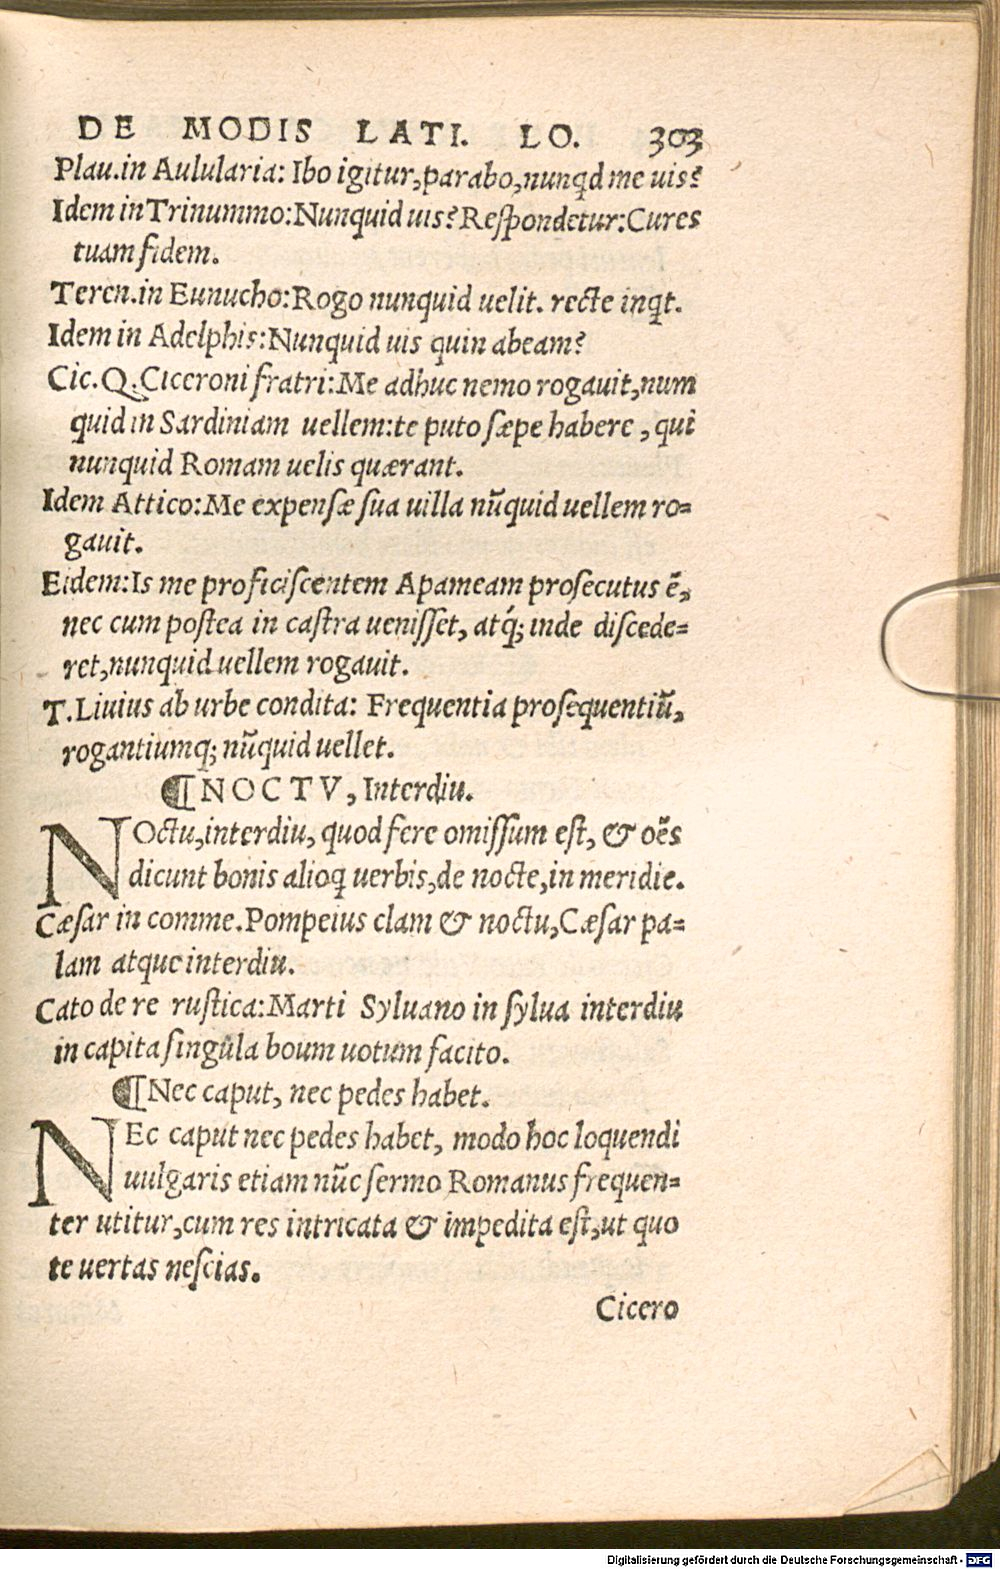 DE MODIS LATI. LO. 303
Plau.in Aulularia: Ibo igitur,parabo,nunqd me uis?
Idem in Trinummo:Nunquid uis? Respondetur:Cures
tuam fidem.
Teren.in Eunucho:Rogo nunquid uelit. recte inqt.
Idem in Adelphis:Nunquid uis quin abeam?
Cic.Q.Ciceroni fratri:Me adhuc nemo rogauit,num
quid in Sardiniam uellem:te puto sæpe habere , qui
nunquid Romam uelis quærant.
Idem Attico:Me expensæ sua uilla nũquid uellem ro=
gauit.
Eidem:Is me proficiscentem Apameam prosecutus ẽ,
nec cum postea in castra uenisset, atq́; inde discede=
ret,nunquid uellem rogauit.
T.Liuius ab urbe condita: Frequentia prosequentiũ,
rogantiumq; nũquid uellet.
¶NOCTV, Interdiu.
NOctu,interdiu, quod fere omissum est, & oẽs
dicunt bonis alioq uerbis,de nocte,in meridie.
Cæsar in comme.Pompeius clam & noctu,Cæsar pa=
lam atque interdiu.
Cato de re rustica:Marti Syluano in sylua interdiu
in capita singula boum uotum facito.
¶Nec caput, nec pedes habet.
NEc caput nec pedes habet, modo hoc loquendi
uulgaris etiam nũc sermo Romanus frequen=
ter utitur,cum res intricata & impedita est,ut quo
te uertas nescias.
Cicero
Digitalisierung gefördert durch die Deutsche Forschungsgemeinschaft - DFG